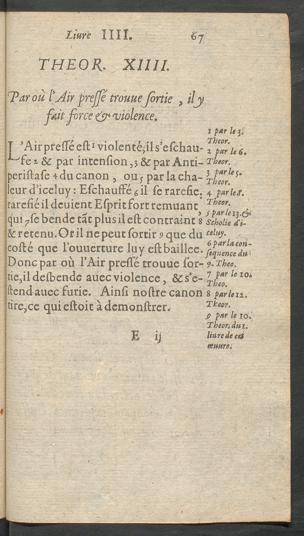 Liure IIII. 67
THEOR. XIIII.
Par où l'Air pressé trouue sortie, il y
fait force & violence.
L'Air pressé est 1 violenté; il s'eschau-
fe 2 & par intension, 3 & par Anti-
peristase 4 du canon, ou 5 par la cha-
leur d'iceluy: Eschauffé 6 il se rarefie,
rarefié il deuient Esprit fort remuant,
qui 7 se bende tāt plus il est contraint 8
& retenu. Or il ne peut sortir 9 que du
costé que l'ouuerture luy est baillee.
Donc par où l'Air pressé trouue sor-
tie, il desbende auec violence, & s'e-
stend auec furie. Ainsi nostre canon
tire, ce qui estoit à demonstrer.
1 par le 3.
Theor.
2 par le 6.
Theor.
3 par le 5.
Theor.
4 par le 8.
Theor.
5 par le 13. &
Scholie d'i-
celuy.
6 par la con-
sequence du
9. Theo.
7 par le 10.
Theo.
8 par le 12.
Theor.
9 par le 10.
Theor. du 1.
liure de cet
œuure.
E ij